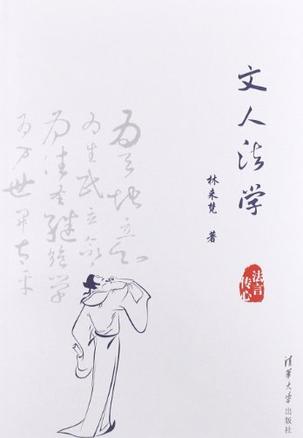 文人法学
林来梵 著
法言
传心
为天地立心
为生民立命
为往圣继绝学
为万世开太平
清华大学出版社